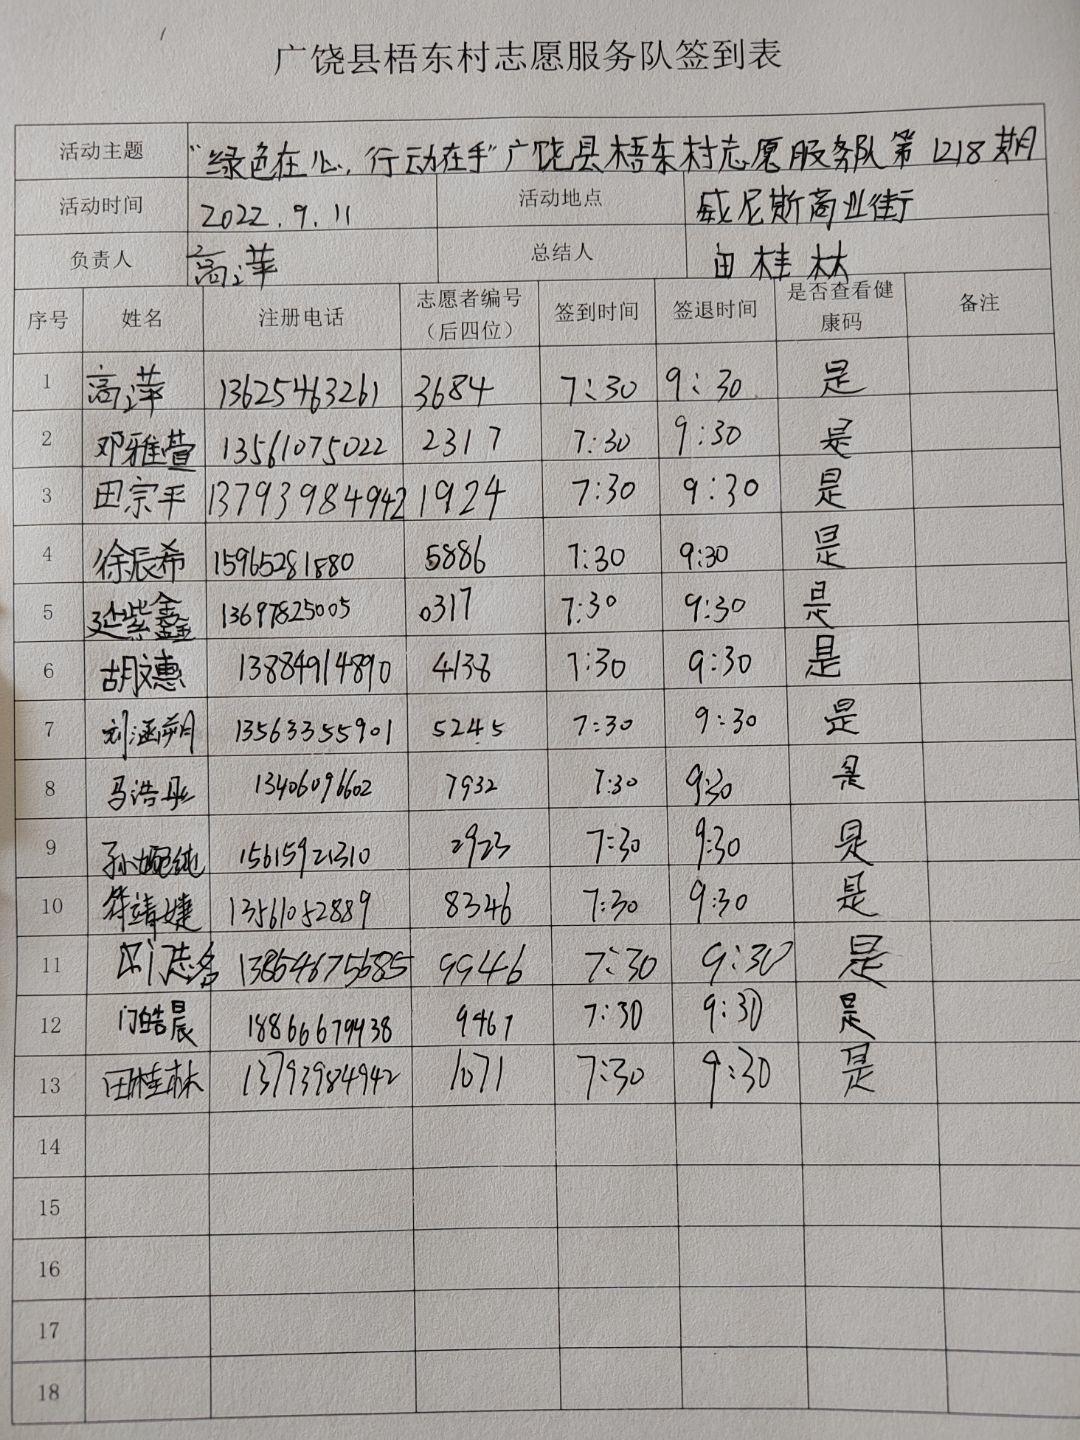 广饶县梧东村志愿服务队签到表
活动主题 “绿色在心,行动在手”广饶县梧东村志愿服务队第1218期
活动时间 2022.9.11 活动地点 威尼斯商业街
负责人 高萍 总结人 田桂林
序号 姓名 注册电话 志愿者编号(后四位) 签到时间 签退时间 是否查看健康码 备注
1 高萍 13625463261 3684 7:30 9:30 是
2 邓雅萱 13561075022 2317 7:30 9:30 是
3 田宗平 13793984942 1924 7:30 9:30 是
4 徐辰希 15965281880 5886 7:30 9:30 是
5 延紫鑫 13697825005 0317 7:30 9:30 是
6 胡文惠 13884914890 4138 7:30 9:30 是
7 刘涵朔 13563355901 5245 7:30 9:30 是
8 马浩 13406096602 7932 7:30 9:30 是
9 孙婉纯 15615921310 2923 7:30 9:30 是
10 靖婕 13561052889 8346 7:30 9:30 是
11 门志名 13864675685 9946 7:30 9:30 是
12 门皓晨 18866679938 9467 7:30 9:30 是
13 田桂林 13793984942 1071 7:30 9:30 是
14
15
16
17
18